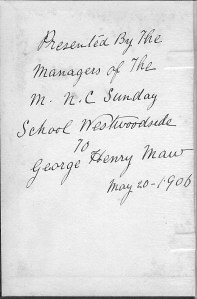 Presented By The
Managers of The
M. N.C Sunday
School Westwoodside
To
George Henry Maw
May 20-1906